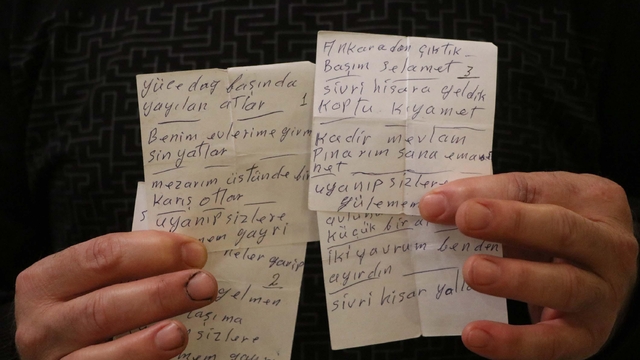 yüce dağ başında
yayılan atlar 1
Benim evlerime girm
sin yatlar
mezarım üstünde bir
Karış otlar
uyanıp sizlere
mem gayri
neler garip
2
gelmen
taşıma
sizlere
mem gayri
Ankaradan çıktık
Başım selamet 3
sivri hisara geldik
KOPTU. Kıyamet
Kadir mevlam
Pınarım sana emane
net
uyanıp sizlere
gülemem
küçük bir
iki yavrum benden
ayırdın
sivri hisar